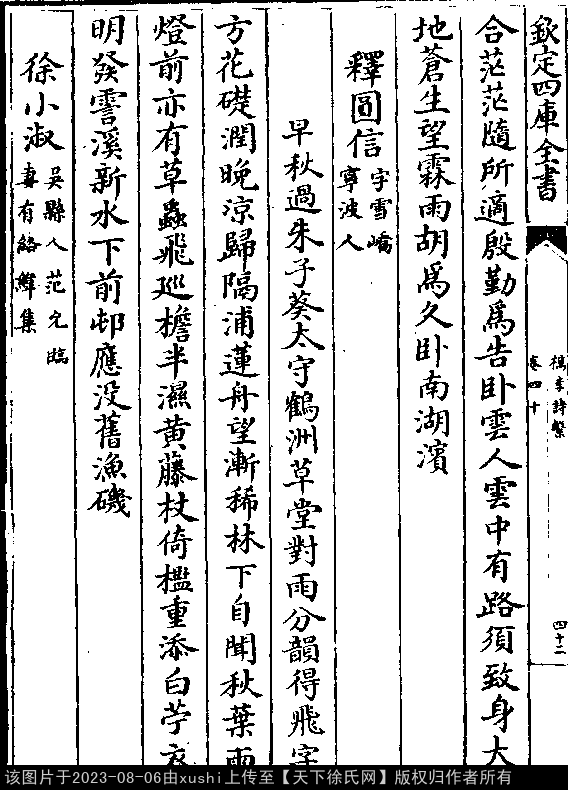 欽定四庫全書
檇李詩繫
卷四十
四十二
合茫茫隨所適殷勤爲告卧雲人雲中有路須致身大
地蒼生望霖雨胡爲久卧南湖濱
釋圓信 字雪嶠
寧波人
早秋過朱子葵太守鶴洲草堂對雨分韻得飛字
方花礎潤晚涼歸隔浦蓮舟望漸稀林下自聞秋葉雨
燈前亦有草蟲飛巡檐半濕黄藤杖倚檻重添白苧衣
明發霅溪新水下前邨應没舊漁磯
徐小淑 吳縣人范允臨
妻有絡緯集
该图片于2023-08-06由xushi上传至【天下徐氏网】版权归作者所有